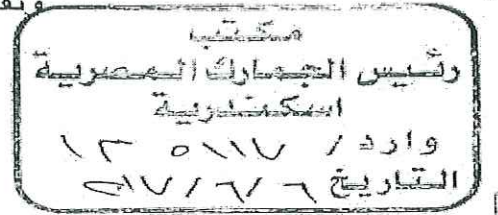 مكتب
رئيس الجمارك المصرية
اسكندرية
وارد /
التاريخ ٦ / ٦ /